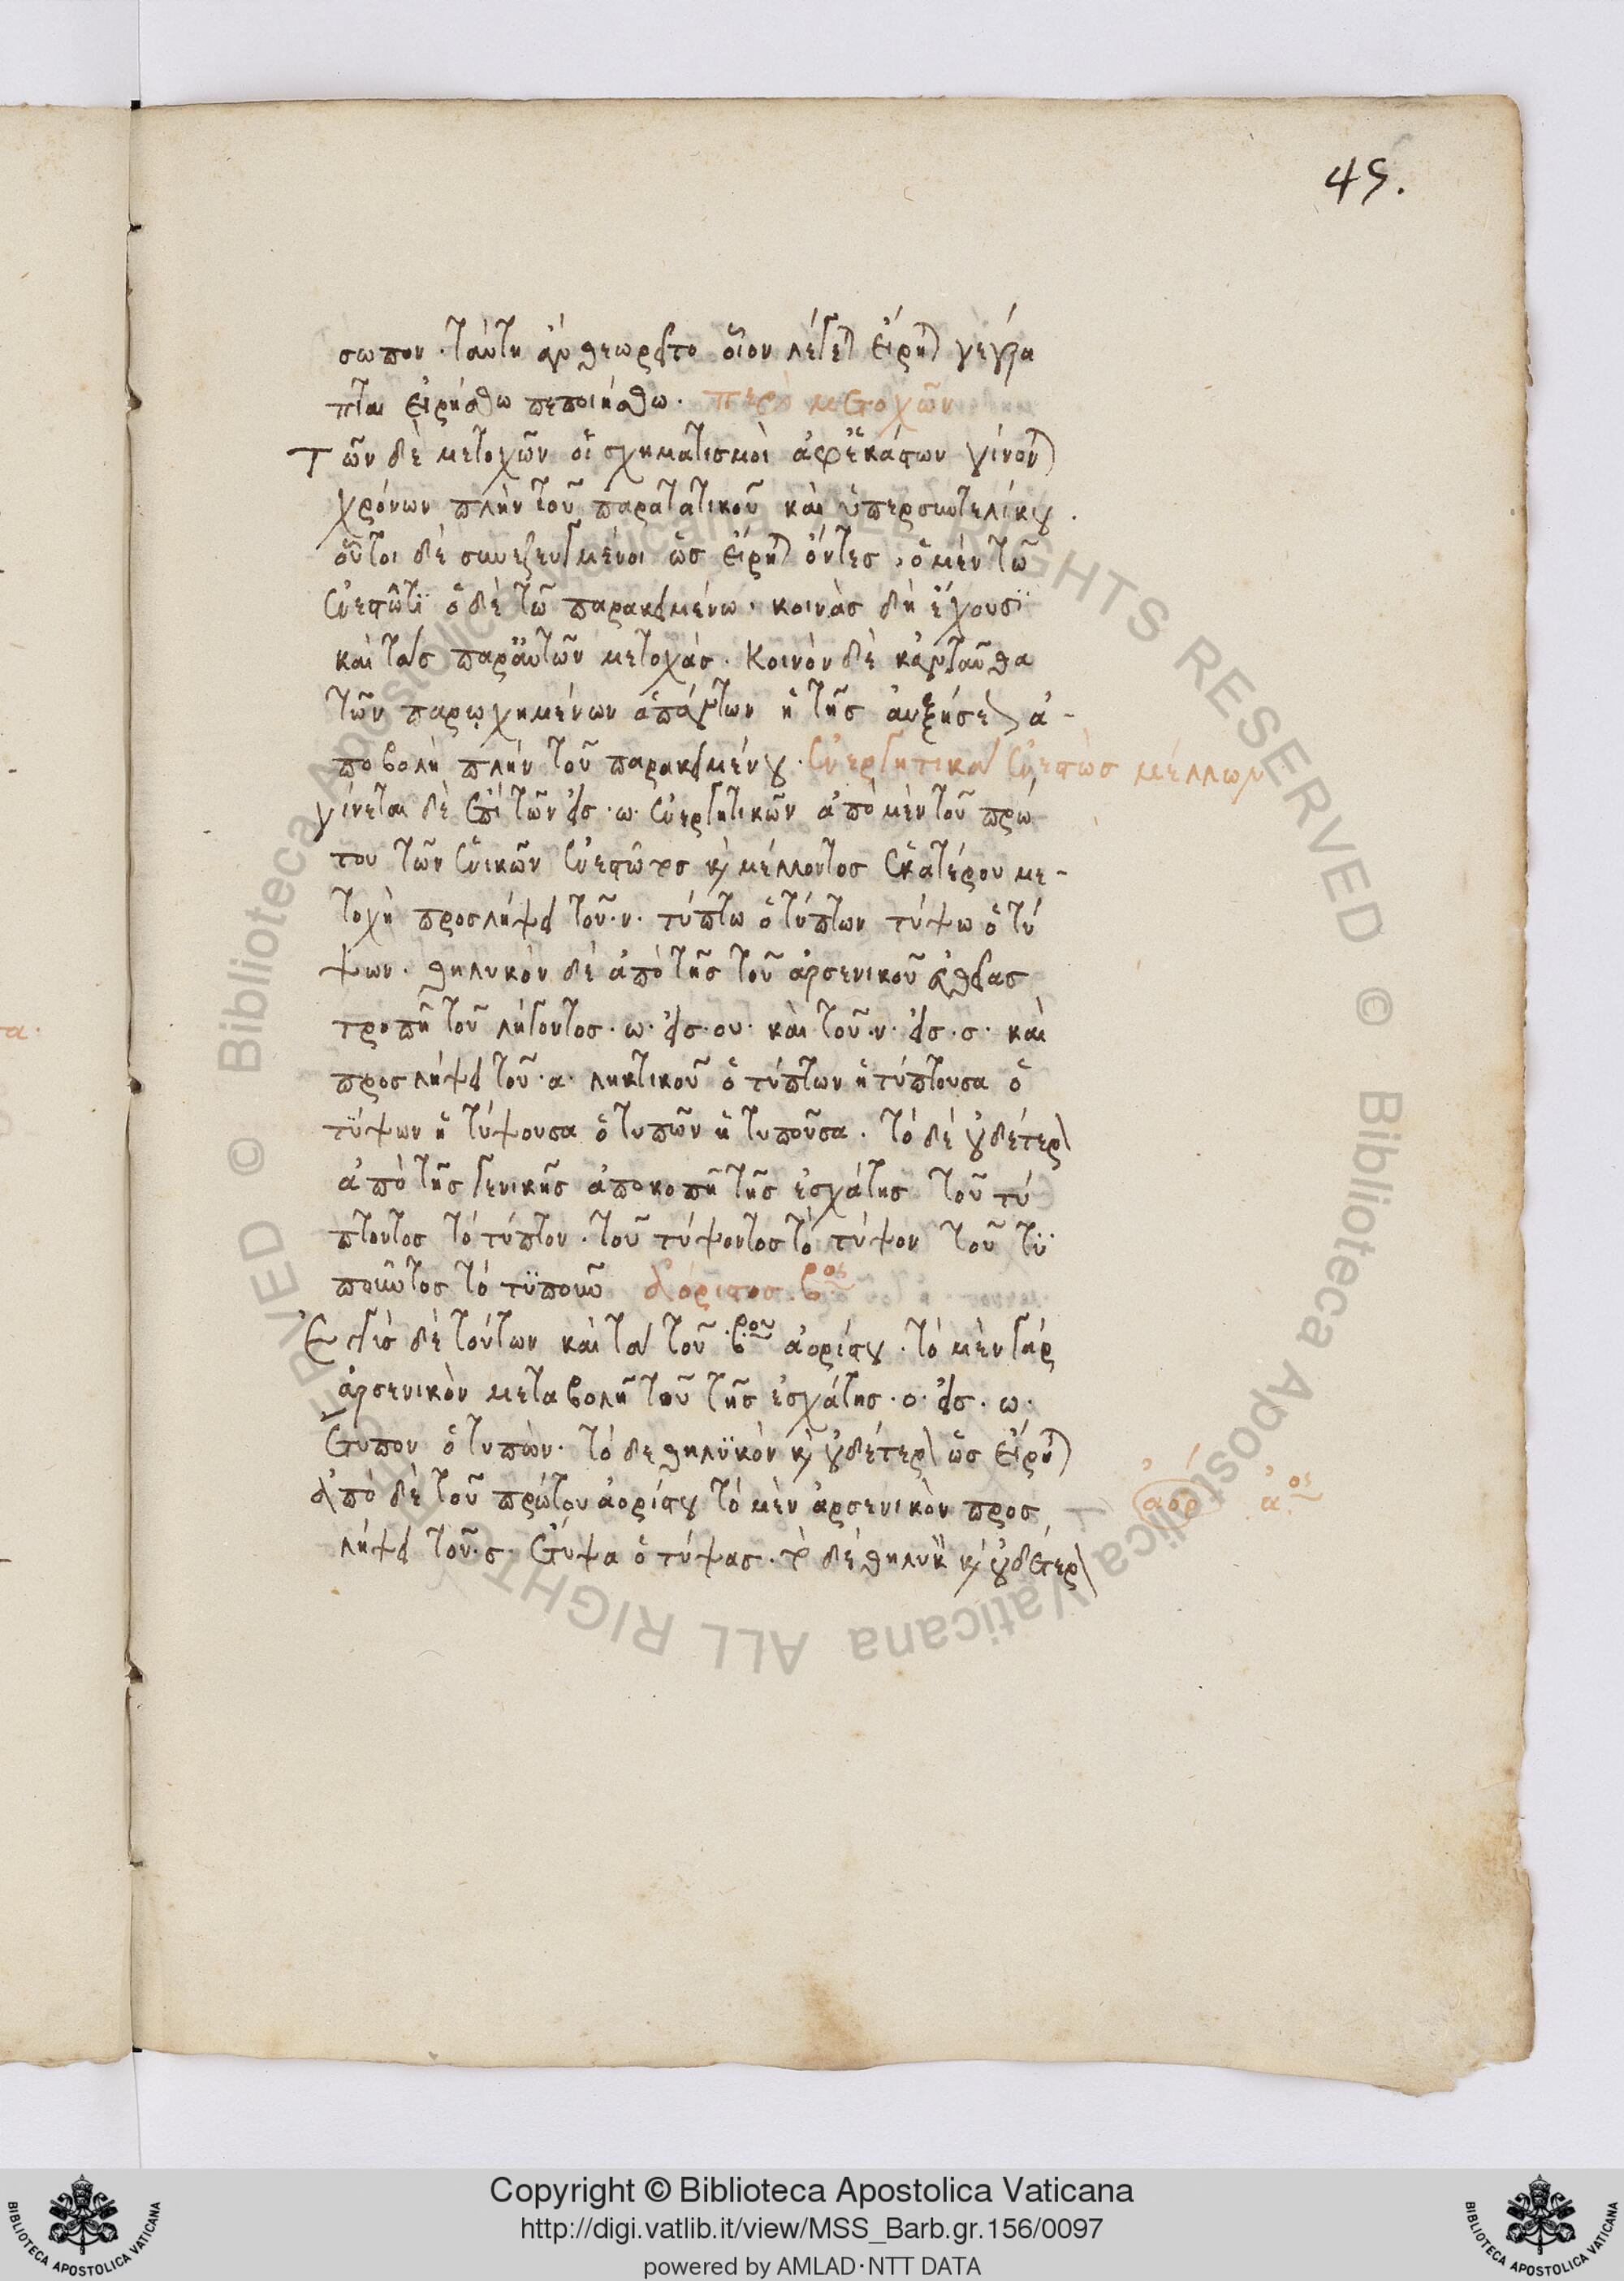 45.
σωπον. ταύτη ἐνθεωρεῖτο οἷον λέγεται εἴρηται γέγρα
πται εἰρήσθω πεποιήσθω. περὶ μετοχῶν
Τῶν δὲ μετοχῶν οἱ σχηματισμοὶ ἀφ' ἑκάστων γίνονται
χρόνων πλὴν τοῦ παρατατικοῦ καὶ ὑπερσυντελίκου.
οὗτοι δὲ συνεζευγμένοι ὡς εἴρηται ὄντες, ὁ μὲν τῶ
ἐνεστῶτι ὁ δὲ τῶ παρακειμένω. κοινὰς δὴ ἔχουσι
καὶ τὰς παρ' αὐτῶν μετοχάς. Κοινὸν δὲ κἀνταῦθα
τῶν παρῳχημένων ἁπάντων ἡ τῆς αὐξήσεως ἀ-
ποβολὴ πλὴν τοῦ παρακειμένου. ἐνεργητικὰ ἐνεστὼς μέλλων
γίνεται δὲ ἐπὶ τῶν εἰς .ω. ἐνεργητικῶν ἀπὸ μὲν τοῦ πρώ
του τῶν ἑνικῶν ἐνεστῶτος καὶ μέλλοντος ἑκατέρου με-
τοχὴ προσλήψει τοῦ .ν. τύπτω ὁ τύπτων τύψω ὁ τύ
ψων. θηλυκὸν δὲ ἀπὸ τῆς τοῦ ἀρσενικοῦ εὐθείας
τροπῆ τοῦ λήγοντος .ω. εἰς .ου. καὶ τοῦ .ν. εἰς .σ. καὶ
προσλήψει τοῦ .α. ληκτικοῦ ὁ τύπτων ἡ τύπτουσα ὁ
τύψων ἡ τύψουσα ὁ τυπῶν ἡ τυποῦσα. τὸ δὲ οὐδέτερον
ἀπὸ τῆς γενικῆς ἀποκοπῆ τῆς ἐσχάτης τοῦ τύ
πτοντος τὸ τύπτον. τοῦ τύψοντος τὸ τύψον τοῦ τυ
ποῦντος τὸ τυποῦν ἀόριστος .βος
Ἐγγὺς δὲ τούτων καὶ τὰ τοῦ .βου ἀορίστου. τὸ μὲν γὰρ
ἀρσενικὸν μεταβολῆ τοῦ τῆς ἐσχάτης .ο. εἰς .ω.
ἔτυπον ὁ τυπών. τὸ δὲ θηλυκὸν καὶ οὐδέτερον ὡς εἴρηται
ἀπὸ δὲ τοῦ πρώτου ἀορίστου τὸ μὲν ἀρσενικὸν προσ ἀόρ αος
λήψει τοῦ .ς. ἔτυψα ὁ τύψας. τὸ δὲ θηλυκὸν καὶ οὐδέτερον
Copyright © Biblioteca Apostolica Vaticana
http://digi.vatlib.it/view/MSS_Barb.gr.156/0097
powered by AMLAD·NTT DATA